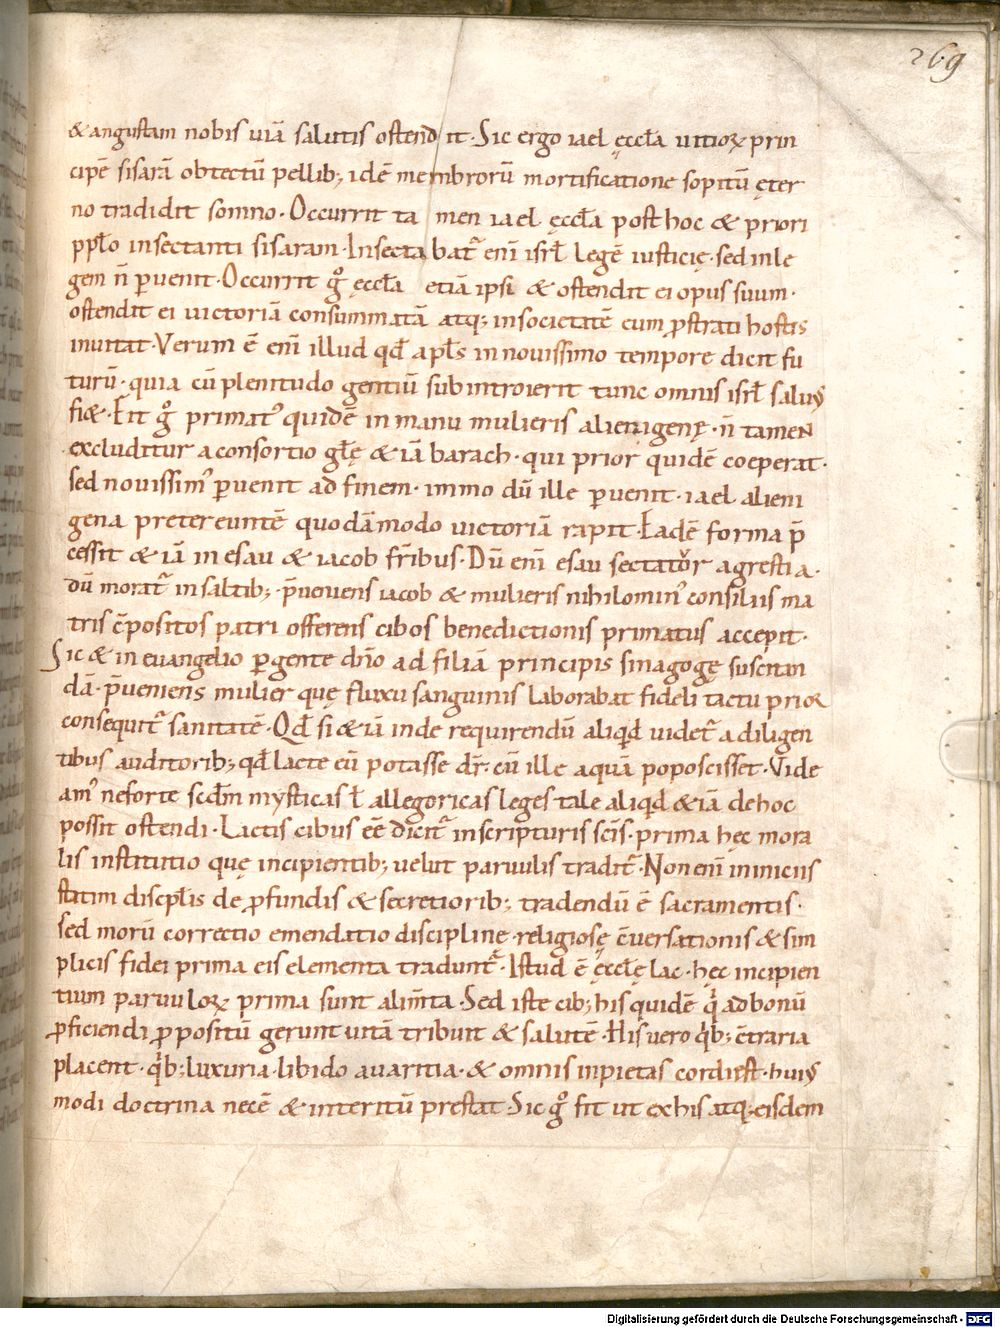 269
& angustam nobis uiā salutis ostendit. Sic ergo iael ęccła ultioꝝ prin
cipē sisarā obtectū pellib; idē membrorū mortificatione sopitū ęter
no tradidit somno. Occurrit tamen iael ęccła post hoc & priori
pplo insectanti sisaram. Insectabat᷑ enī isrł legē iusticię. sed in le
gem n̄ ꝑuenit. Occurrit gͦ ęccła etiā ipsi & ostendit ei opus suum.
ostendit ei uictoriā consummatā atq; in societatē eum ꝓstrati hostis
inuitat. Verum ē enī illud qđ apłs in nouissimo tempore dicit fu
turū. quia cū plenitudo gentiū subintroierit tunc omnis isrł saluꝰ
fi&. Fit gͦ primatꝰ quidē in manu mulieris alienigenę. n̄ tamen
excluditur a consortio głę &iā barach. qui prior quidē coeperat.
sed nouissimꝰ ꝑuenit ad finem. immo dū ille ꝑuenit. iael alieni
gena pretereuntē quodāmodo uictoriā rapit. Eadē forma p̄
cessit &iā in esau & iacob fr̄ibus. Dū enī esau sectator agrestia.
dū morat᷑ in saltib; p̄ueniens iacob & mulieris nihilominꝰ consiliis ma
tris c̄positos patri offerens cibos benedictionis primatus accepit.
Sic & in euangelio ꝑgente dn̄o ad filiā principis sinagogę suscitan
dā. p̄ueniens mulier quę fluxu sanguinis laborabat fideli tactu prior
consequit᷑ sanitatē. Qđ si &iā inde requirendū aliqđ uidet᷑ a diligen
tibus auditorib; qđ lacte eū potasse dr̄. cū ille aquā poposcisset. Vide
amꝰ ne forte scdm mysticas ł allegoricas leges tale aliqđ &iā de hoc
possit ostendi. Lactis cibus eē dicit᷑ in scripturis scīs. prima hęc mora
lis institutio quę incipientib; uelut paruulis tradit᷑. Non enī in iniciis
statim discipłis de ꝓfundis & secretiorib; tradendū ē sacramentis.
sed morū correctio emendatio disciplinę. religiosę c̄uersationis & sim
plicis fidei prima eis elementa tradunt᷑. Istud ē ęccłę lac. hęc incipien
tium paruuloꝝ prima sunt alim̄ta. Sed iste cib; his quidē qͥ ad bonū
ꝓficiendi ꝓpositū gerunt uitā tribuit & salutē. His uero qͥb; c̄traria
placent. qͥb; luxuria. libido auaritia. & omnis inpietas cordi est. huiꝰ
modi doctrina necē & interitū prestat. Sic gͦ fit ut ex his atq; eisdem
Digitalisierung gefördert durch die Deutsche Forschungsgemeinschaft - DFG